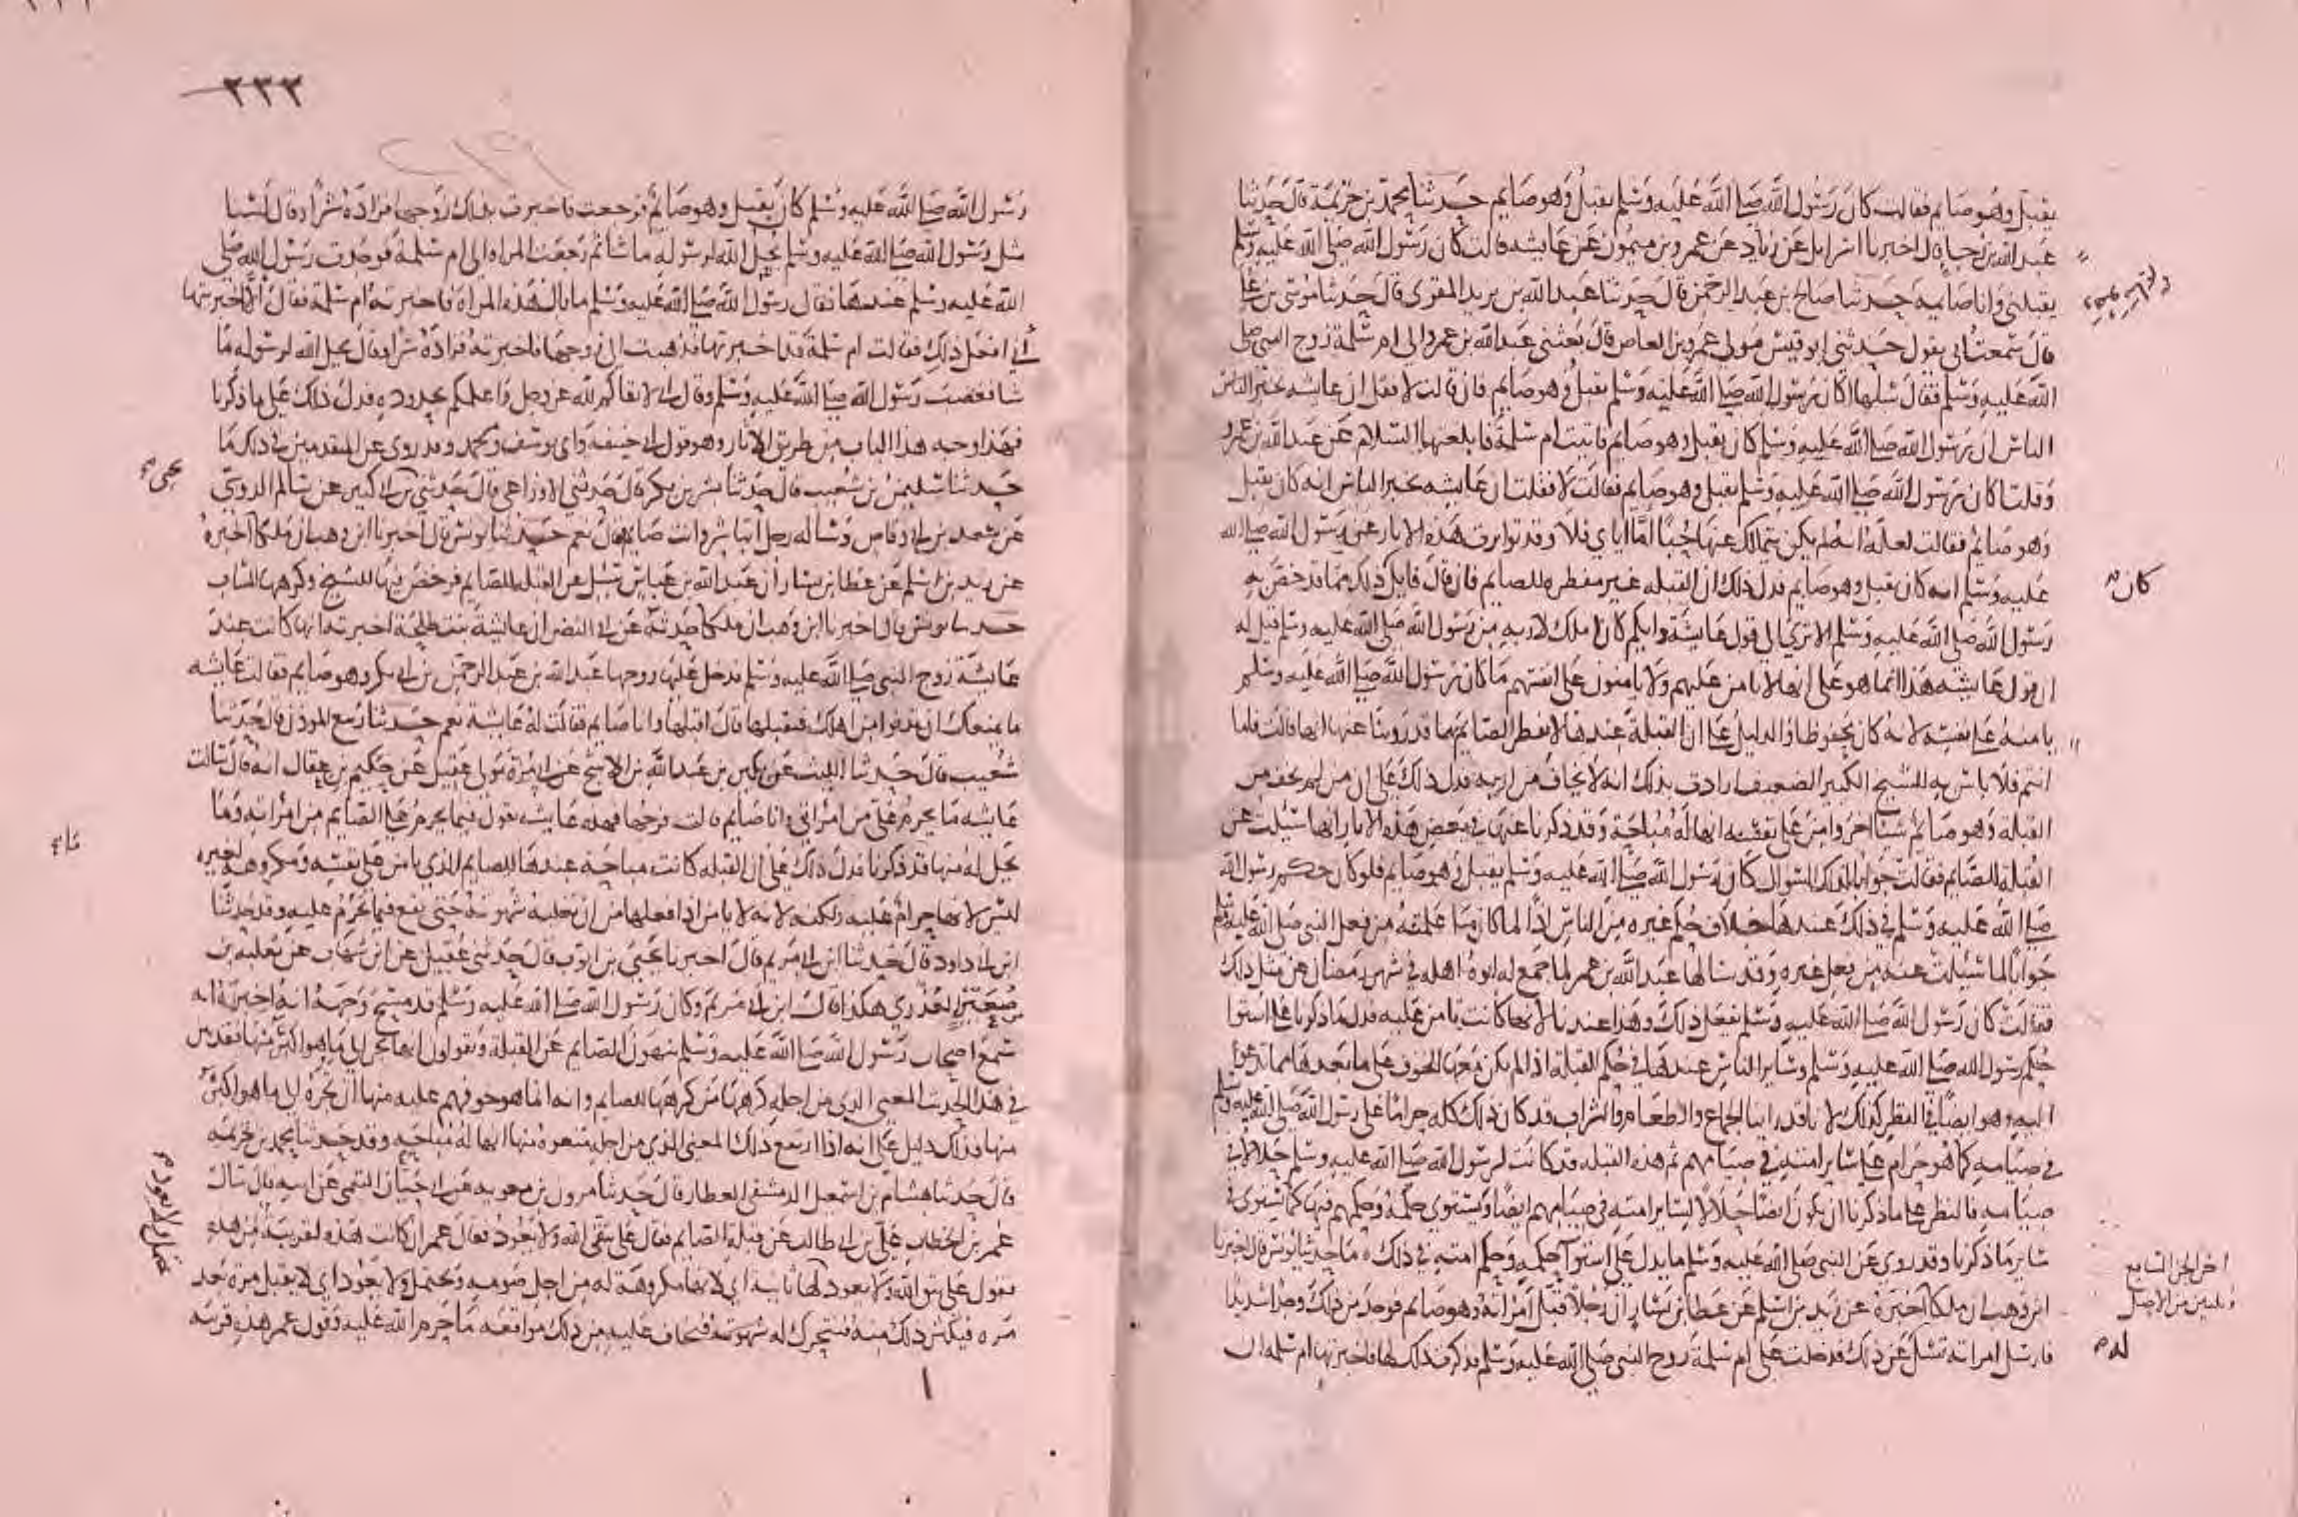 يقبل وهو صايم فقالت كان رسول الله صلى الله عليه وسلم يقبل وهو صايم حدثنا محمد بن خزيمة قال حدثنا
عبد الله بن رجا قال اخبرنا اسرايل عن زياد عن عمرو بن ميمون عن عايشه قالت كان رسول الله صلى الله عليه وسلم
يقبلني وانا صايمه حدثنا صالح بن عبد الرحمن قال حدثنا عبد الله بن يزيد المقرى قال حدثنا موسى بن علي
قال سمعت ابي يقول حدثني ابو قيس مولى عمرو بن العاص قال بعثني عبد الله بن عمرو الى ام سلمة زوج النبي صلى
الله عليه وسلم فقال سلها اكان رسول الله صلى الله عليه وسلم يقبل وهو صايم فان قالت لا فقل ان عايشه تخبر الناس
الناس ان رسول الله صلى الله عليه وسلم كان يقبل وهو صايم فاتيت ام سلمة فابلغتها السلام عن عبد الله بن عمرو
وقلت اكان رسول الله صلى الله عليه وسلم يقبل وهو صايم فقالت لا فقلت ان عايشه تخبر الناس انه كان يقبل
وهو صايم فقالت لعله انه لم يكن يتمالك عنها حبا اما اياي فلا وقد تواترت هذه الاثار عن رسول الله صلى الله
عليه وسلم انه كان يقبل وهو صايم فدل ذلك ان القبله غير مفطره للصايم فان قال قايل كان ذلك مما قد خص به
رسول الله صلى الله عليه وسلم الا ترى الى قول عايشة وايكم كان املك لاربه من رسول الله صلى الله عليه وسلم قيل له
ان قول عايشه هذا انما هو على انها لا تامن عليهم ولا يامنون على انفسهم ما كان رسول الله صلى الله عليه وسلم
يامنه على نفسه لانه كان محفوظا والدليل على ان القبلة عندها لا تفطر الصايم ما قد روينا عنها انها قالت فاما
انتم فلا باس به للشيخ الكبير الضعيف ارادت بذلك انه لا يخاف من اربه فدل ذلك على ان من لم يخف من
القبلة وهو صايم شيا اخر وامن على نفسه انها له مباحة وقد ذكرنا عنها في بعض هذه الاثار انها سئلت عن
القبلة للصايم فقالت جوابا لذلك السوال كان رسول الله صلى الله عليه وسلم يقبل وهو صايم فلو كان حكم رسول الله
صلى الله عليه وسلم في ذلك عندها خلاف حكم غيره من الناس اذا لما كان ما علمته من فعل النبي صلى الله عليه وسلم
جوابا لما سئلت عنه من فعل غيره وقد سالها عبد الله بن عمر لما جمع له ابوه اهله في شهر رمضان عن مثل ذلك
فقالت كان رسول الله صلى الله عليه وسلم يفعل ذلك وهذا عندنا لانها كانت تامن عليه فدل ما ذكرنا على استوا
حكم رسول الله صلى الله عليه وسلم وساير الناس عندها في حكم القبلة اذا لم يكن معها الخوف على ما بعدها مما تدعو
اليه وهو ايضا في النظر كذلك لانا قد راينا الجماع والطعام والشراب قد كان ذلك كله حراما على رسول الله صلى الله عليه وسلم
في صيامه كما هو حرام على ساير امته في صيامهم ثم هذه القبله قد كانت لرسول الله صلى الله عليه وسلم حلالا في
صيامه فالنظر على ما ذكرنا ان يكون ايضا حلالا لساير امته في صيامهم ايضا ويستوي حكمه وحكمهم فيها كما يستوي في
ساير ما ذكرنا وقد روى عن النبي صلى الله عليه وسلم ما يدل على استوا حكمه وحكم امته في ذلك ه ما حدثنا يونس قال اخبرنا
ابن وهب ان ملكا اخبره عن زيد بن اسلم عن عطا بن يسار ان رجلا قبل امراته وهو صايم فوجد من ذلك وجدا شديدا
فارسل امراته تسل عن ذلك فدخلت على ام سلمة زوج النبي صلى الله عليه وسلم فذكرت ذلك لها فاخبرتها ام سلمه ان
كان
اخر الجزء السابع
وثلثين من الاصل
له
٢٣٣
رسول الله صلى الله عليه وسلم كان يقبل وهو صايم فرجعت فاخبرت بذلك زوجها فزاده شرا وقال لسنا
مثل رسول الله صلى الله عليه وسلم يحل الله لرسوله ما شا ثم رجعت المراه الى ام سلمة فوجدت رسول الله صلى
الله عليه وسلم عندها فقال رسول الله صلى الله عليه وسلم ما بال هذه المراة فاخبرته ام سلمة فقال الا اخبرتها
أني افعل ذلك فقالت ام سلمة قد اخبرتها فذهبت الى زوجها فاخبرته فزاده شرا وقال يحل الله لرسوله ما
شا فغضب رسول الله صلى الله عليه وسلم وقال اني لاتقاكم لله عز وجل واعلمكم بحدوده فدل ذلك على ما ذكرنا
فهذا وجه هذا الباب من طريق الاثار وهو قول ابي حنيفه وابي يوسف ومحمد وقد روي عن المتقدمين في ذلك ما
حدثنا سليمن بن شعيب قال حدثنا بشر بن بكر قال حدثني الاوزاعي قال حدثني بن ابي كثير عن سالم الدوسي
عن سعد بن ابي وقاص وساله رجل اتباشر وانت صايم قال نعم حدثنا يونس قال اخبرنا ابن وهب ان ملكا اخبره
عن زيد بن اسلم عن عطا بن يسار ان عبد الله بن عباس سئل عن القبله للصايم فرخص فيها للشيخ وكرهها للشاب
حدثنا يونس قال اخبرنا ابن وهب ان ملكا حدثه عن ابي النضر ان عايشة بنت طلحة اخبرته انها كانت عند
عايشة زوج النبي صلى الله عليه وسلم فدخل عليها زوجها عبد الله بن عبد الرحمن بن ابي بكر وهو صايم فقالت عايشه
ما يمنعك ان تدنو من اهلك فتقبلها قال اقبلها وانا صايم فقالت له عايشة نعم حدثنا ربيع الموذن قال حدثنا
شعيب قال حدثنا الليث عن بكير بن عبد الله بن الاشج عن ابي مرة مولى عقيل عن حكيم بن عقال انه قال سالت
عايشه ما يحرم علي من امراتي وانا صايم قالت فرجها فهذه عايشه تقول فيما يحرم على الصايم من امراته وما
يحل له منها قد ذكرنا فدل ذلك على ان القبله كانت مباحة عندها للصايم الذي يامن على نفسه ومكروهه لغيره
ليس لانها حرام عليه ولكنه لانه لا يامن اذا فعلها من ان تغلبه شهوته حتى يقع فيما يحرم عليه وقد حدثنا
ابن ابي داود قال حدثنا ابن ابي مريم قال اخبرنا يحيى بن ايوب قال حدثني عقيل عن ابن شهاب عن ثعلبه بن
صعير العذري هكذا قال ابن ابي مريم وكان رسول الله صلى الله عليه وسلم قد مسح وجهه انه اخبره انه
سمع اصحاب رسول الله صلى الله عليه وسلم ينهون الصايم عن القبلة ويقولون انها تجر الى ما هو اكثر منها فقد بين
في هذا الحديث المعنى الذي من اجله كرهها من كرهها للصايم وانه انما هو خوفهم عليه منها ان تجره الى ما هو اكثر
منها فذلك دليل على انه اذا ارتفع ذلك المعنى الذي من اجله منعوه منها انها له مباحه وقد حدثنا محمد بن خزيمه
قال حدثنا هشام بن اسمعيل الدمشقي العطار قال حدثنا مرون بن معويه عن ابي حيان التيمي عن ابيه قال سال
عمر بن الخطاب علي بن ابي طالب عن قبلة الصايم فقال علي يتقي الله ولا يعود فقال عمر ان كانت هذه لقريبة من هذه
فقول علي يتق الله ولا يعود لها ثانية اي لانها مكروهة له من اجل صومه ويحتمل ولا يعود اي لا يقبل مرة بعد
مره فيكثر ذلك منه فتتحرك له شهوته فيخاف عليه من ذلك مواقعه ما حرم الله عليه وقول عمر هذه قريبه
يحيى